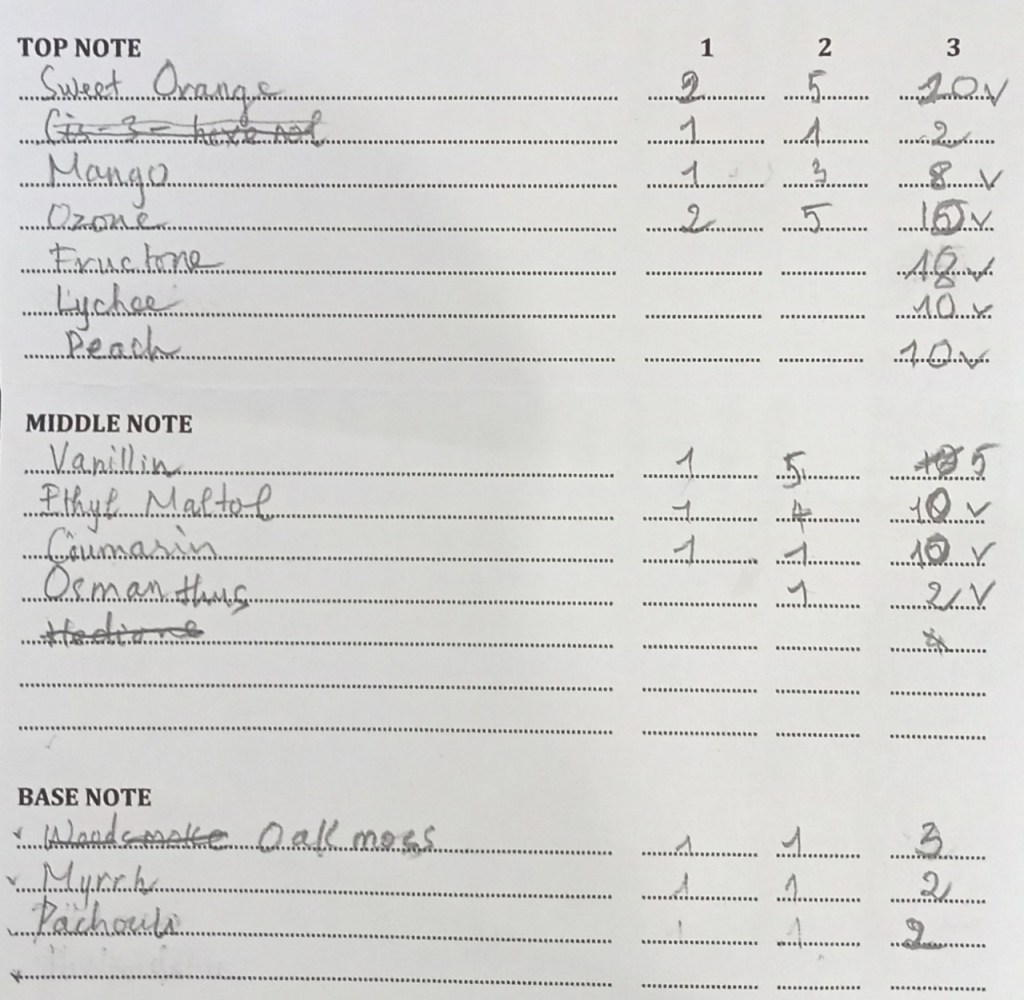 TOP NOTE 1 2 3
Sweet Orange 2 5 20 v
Cis-3-hexenol 1 1 2
Mango 1 3 8 v
Ozone 2 5 v
Fructone 18 v
Lychee 10 v
Peach 10 v
MIDDLE NOTE
Vanillin 1 5 5
Ethyl Maltol 1 4 10 v
Coumarin 1 1 10 v
Osmanthus 1 2 v
Hedione 4
BASE NOTE
Woodsmoke Oakmoss 1 1 3
Myrrh 1 1 2
Pachouli 1 1 2